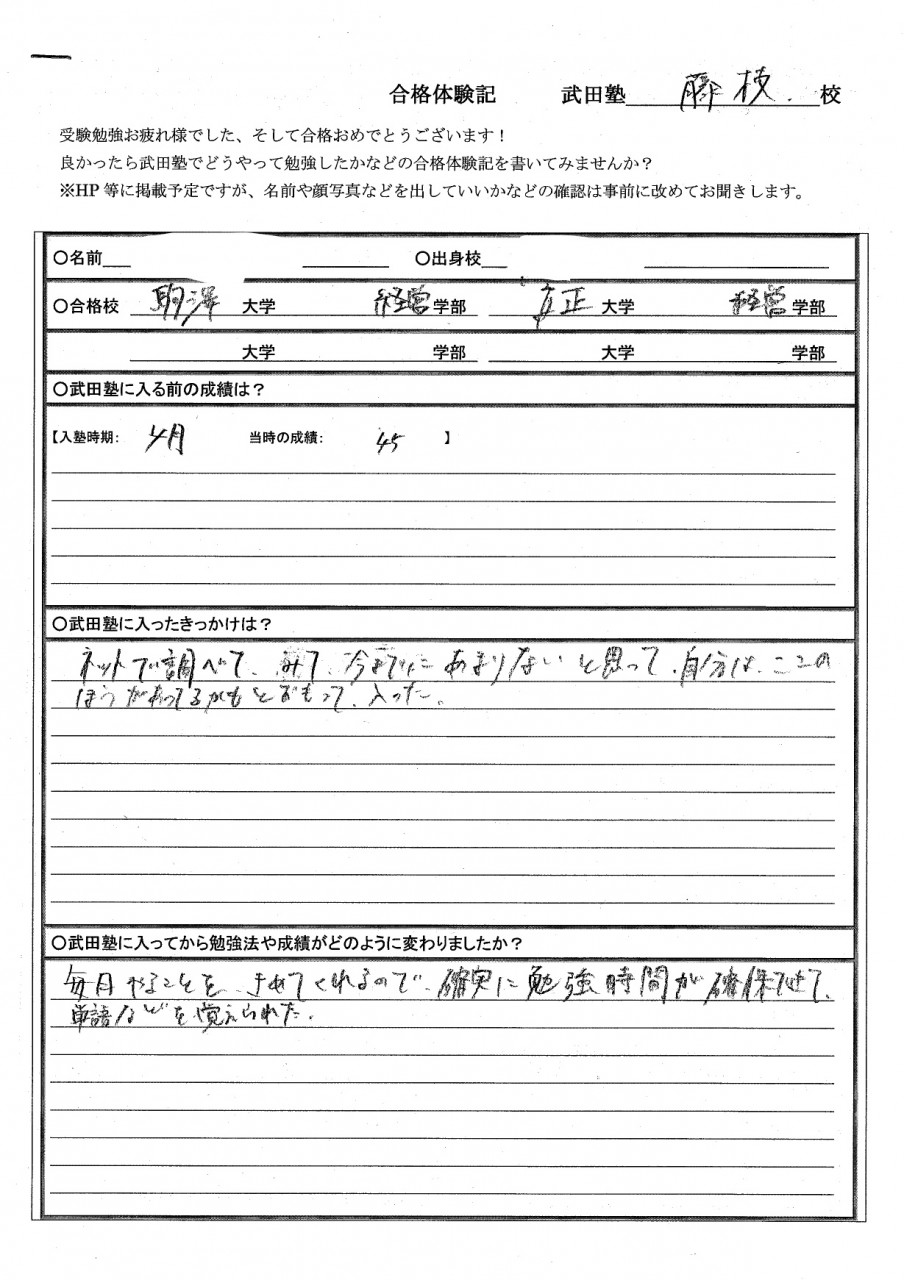 合格体験記 武田塾 藤枝 校
受験勉強お疲れ様でした、そして合格おめでとうございます！
良かったら武田塾でどうやって勉強したかなどの合格体験記を書いてみませんか？
※HP 等に掲載予定ですが、名前や顔写真などを出していいかなどの確認は事前に改めてお聞きします。
〇名前 〇出身校
〇合格校 駒澤 大学 経営 学部 立正 大学 経営 学部
大学 学部 大学 学部
〇武田塾に入る前の成績は？
【入塾時期： 4月 当時の成績： 45 】
〇武田塾に入ったきっかけは？
ネットで調べて、みて、今までにあまりないと思って、自分は、ここの
ほうがあってるかもとおもって、入った。
〇武田塾に入ってから勉強法や成績がどのように変わりましたか？
毎月やることを、きめてくれるので、確実に勉強時間が確保できて、
単語などを覚えられた。